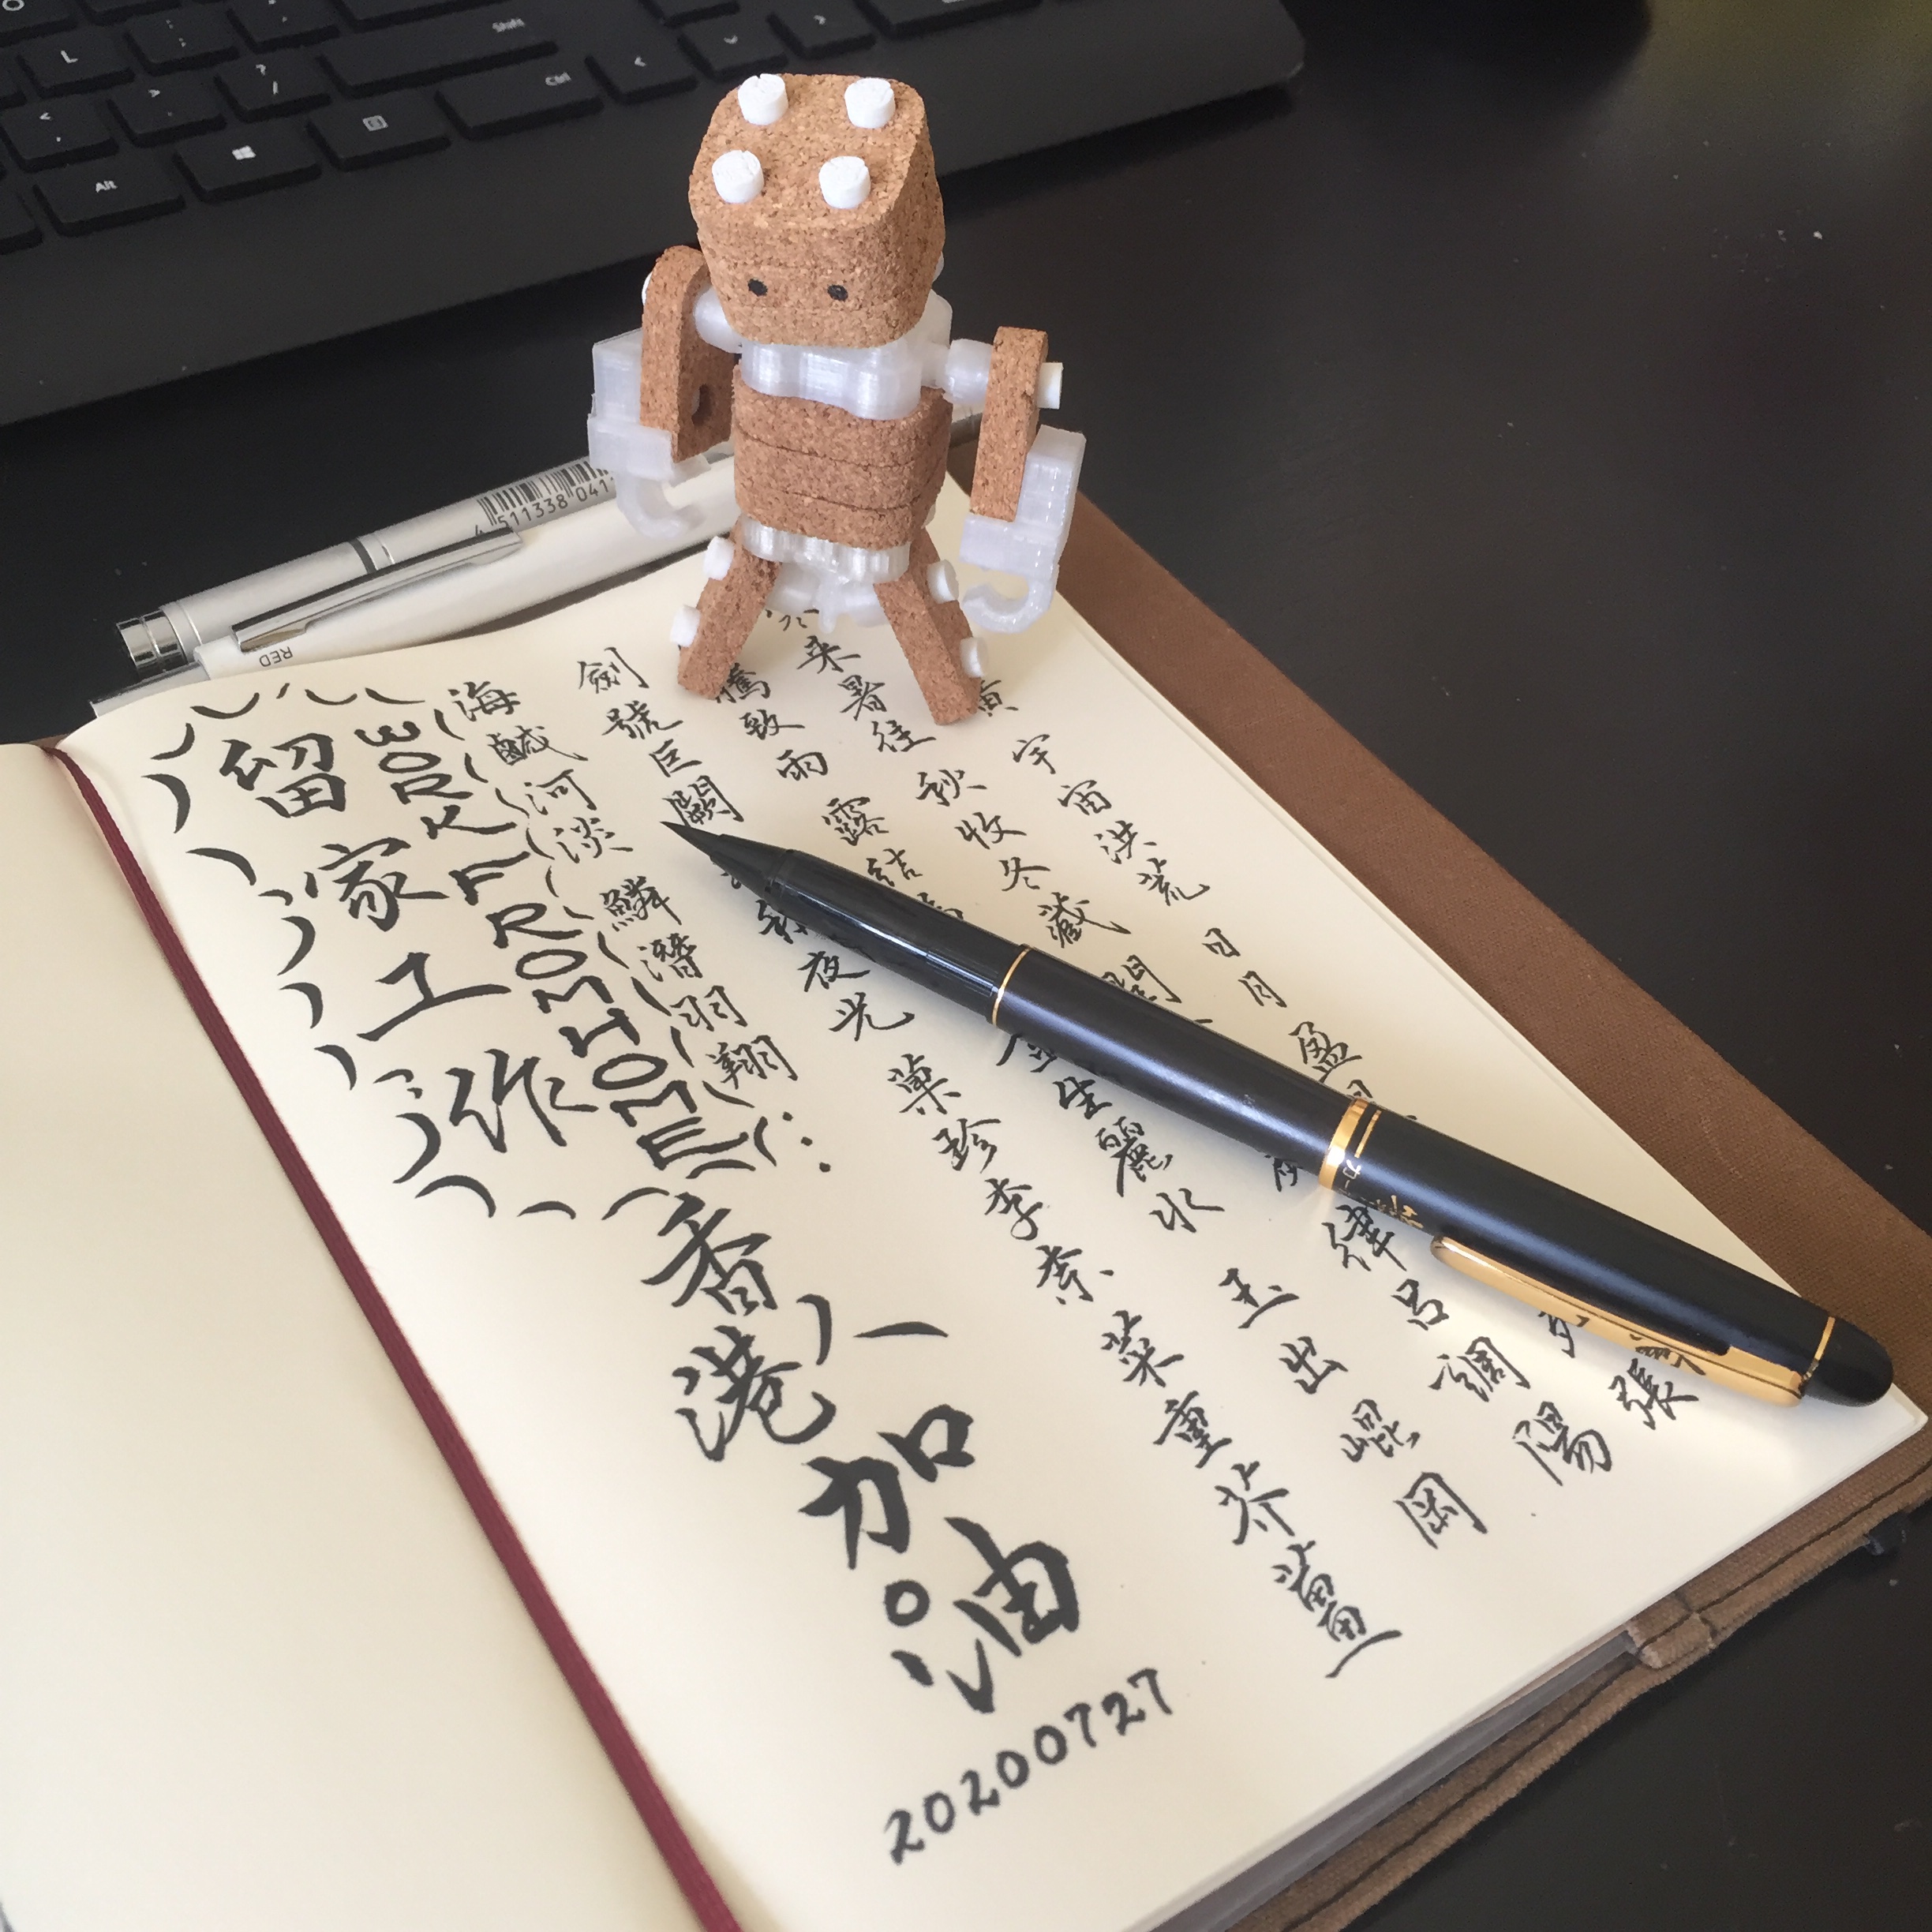 L
Shift
Ctrl
Alt
4 511338 041
RED
黃 宇宙洪荒 日月盈 張
来暑往 秋收冬藏 閏 呂調陽
騰致雨 露結 生麗水 玉出崐岡
劍號巨闕 夜光 菓珍李柰 菜重芥薑
海鹹河淡 鱗潛羽翔
WORK FROM HOME
留家工作
香港人加油
20200727